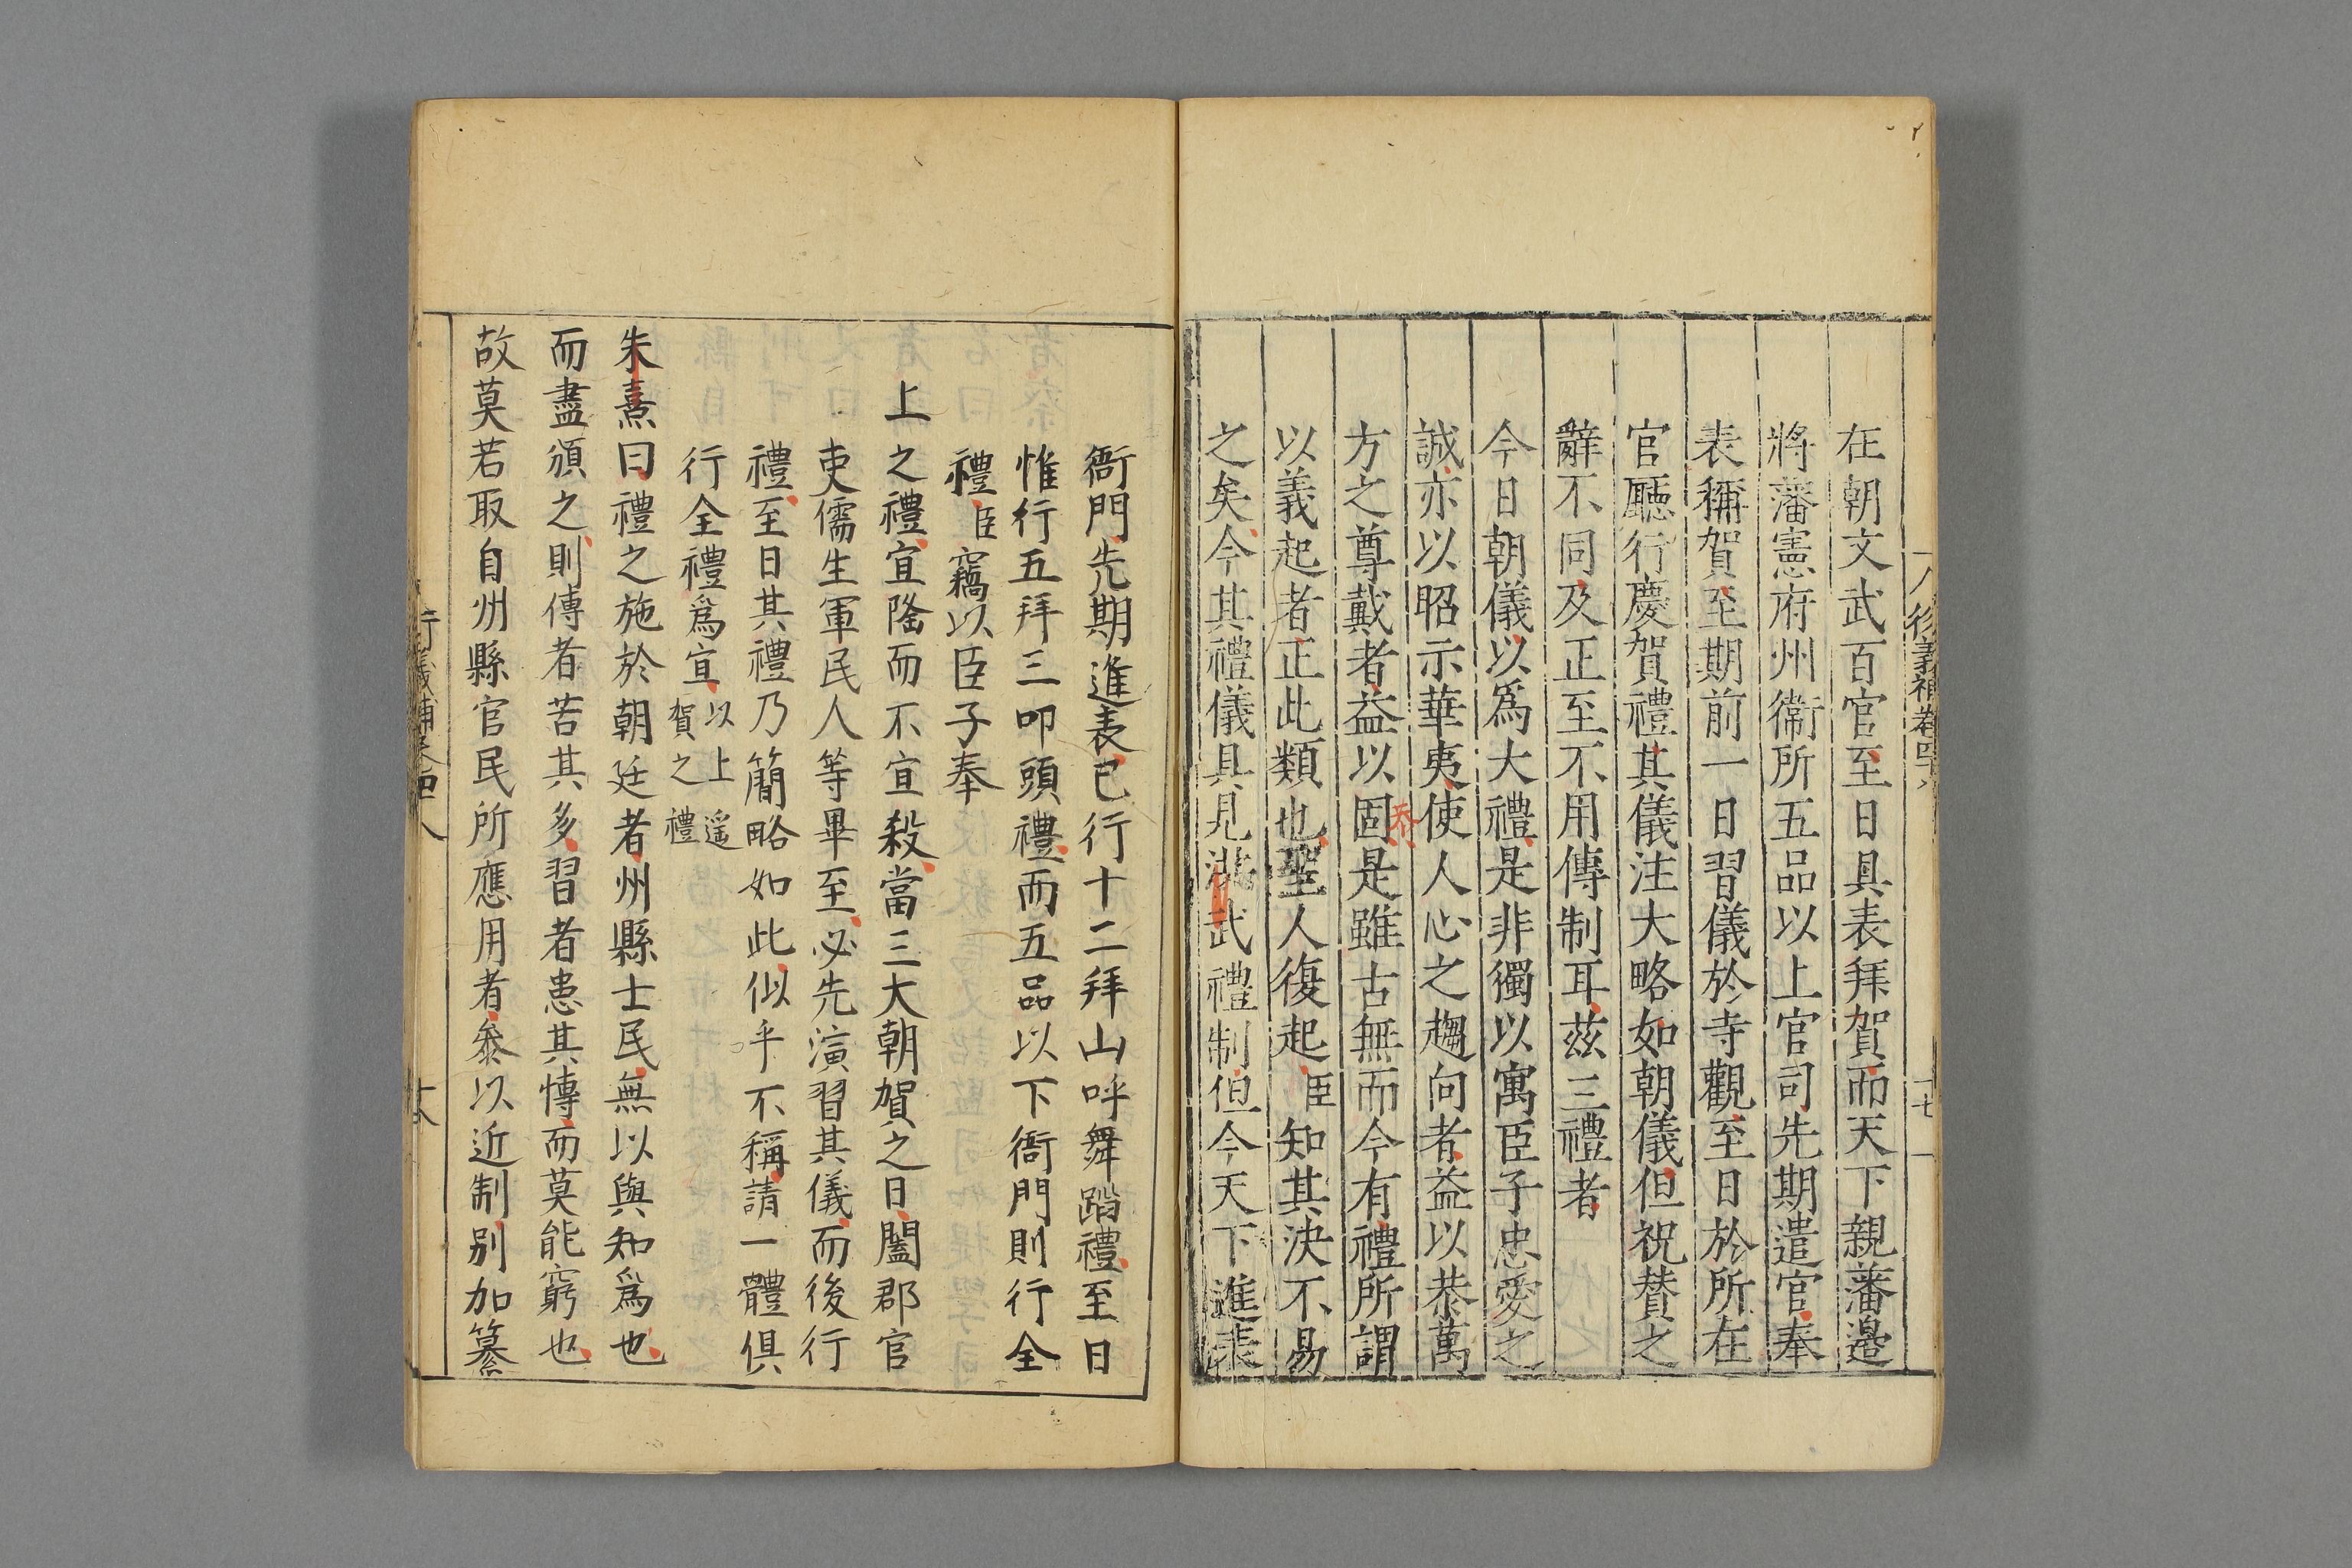 在朝文武百官至日具表拜賀而天下親藩邊
將藩憲府州衛所五品以上官司先期遣官奉
表稱賀至期前一日習儀於寺觀至日於所在
官廳行慶賀禮其儀注大略如朝儀但祝贊之
辭不同及正至不用傳制耳茲三禮者
今日朝儀以爲大禮是非獨以寓臣子忠愛之
誠亦以昭示華夷使人心之趨向者益以恭萬
方之尊戴者益以固是雖古無而今有禮所謂
以義起者正此類也聖人復起臣知其決不易
之矣今其禮儀具見洪武禮制但今天下進表
衙門先期進表已行十二拜山呼舞蹈禮至日
惟行五拜三叩頭禮而五品以下衙門則行全
禮臣竊以臣子奉
上之禮宜隆而不宜殺當三大朝賀之日闔郡官
吏儒生軍民人等畢至必先演習其儀而後行
禮至日其禮乃簡略如此似乎不稱請一體俱
行全禮爲宜以上遥賀之禮
朱熹曰禮之施於朝廷者州縣士民無以與知爲也
而盡頒之則傳者苦其多習者患其慱而莫能窮也
故莫若取自州縣官民所應用者叅以近制别加纂